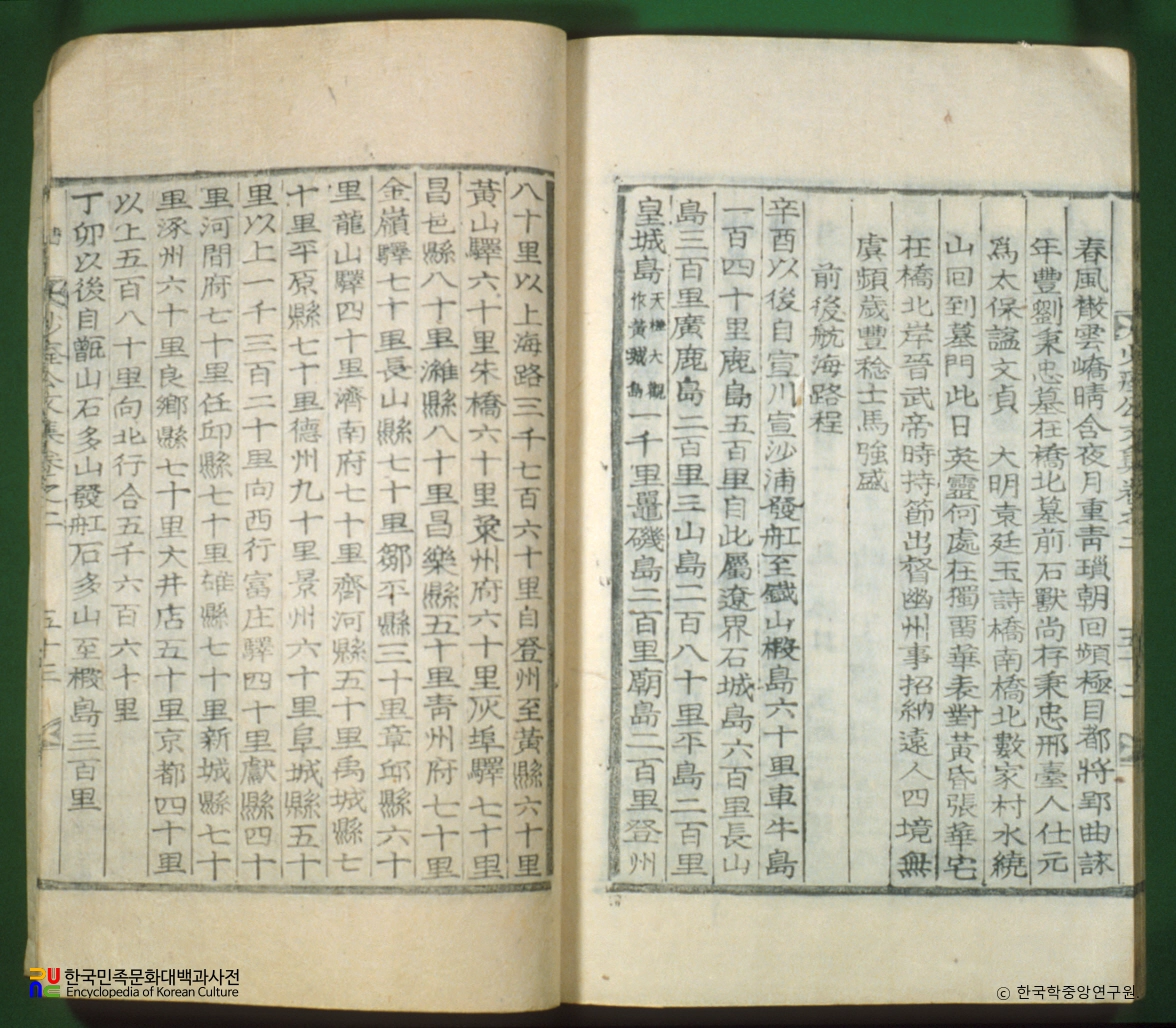 春風散雲嶠晴含夜月重靑瑣朝回頻極目都將郢曲詠
年豐劉秉忠墓在橋北墓前石獸尚存秉忠邢臺人仕元
爲太保諡文貞 大明袁廷玉詩橋南橋北數家村水繞
山回到墓門此日英靈何處在獨留華表對黃昏張華宅
在橋北岸晉武帝時持節出督幽州事招納遠人四境無
虞頻歲豐稔士馬強盛
前後航海路程
辛酉以後自宣川宣沙浦發舡至鐵山椵島六十里車牛島
一百四十里鹿島五百里自此屬遼界石城島六百里長山
島三百里廣鹿島二百里三山島二百八十里平島二百里
皇城島天機大觀作黃城島一千里鼉磯島二百里廟島二百里登州
八十里以上海路三千七百六十里自登州至黃縣六十里
黃山驛六十里朱橋六十里萊州府六十里灰埠驛七十里
昌邑縣八十里濰縣八十里昌樂縣五十里靑州府七十里
金嶺驛七十里長山縣七十里鄒平縣三十里章邱縣六十
里龍山驛四十里濟南府七十里齊河縣五十里禹城縣七
十里平原縣七十里德州九十里景州六十里阜城縣五十
里以上一千三百二十里向西行富庄驛四十里獻縣四十
里河間府七十里任邱縣七十里雄縣七十里新城縣七十
里涿州六十里良鄕縣七十里大井店五十里京都四十里
以上五百八十里向北行合五千六百六十里
丁卯以後自甑山石多山發舡石多山至椵島三百里
公文集卷之二 五十三
한국민족문화대백과사전
Encyclopedia of Korean Culture
© 한국학중앙연구원